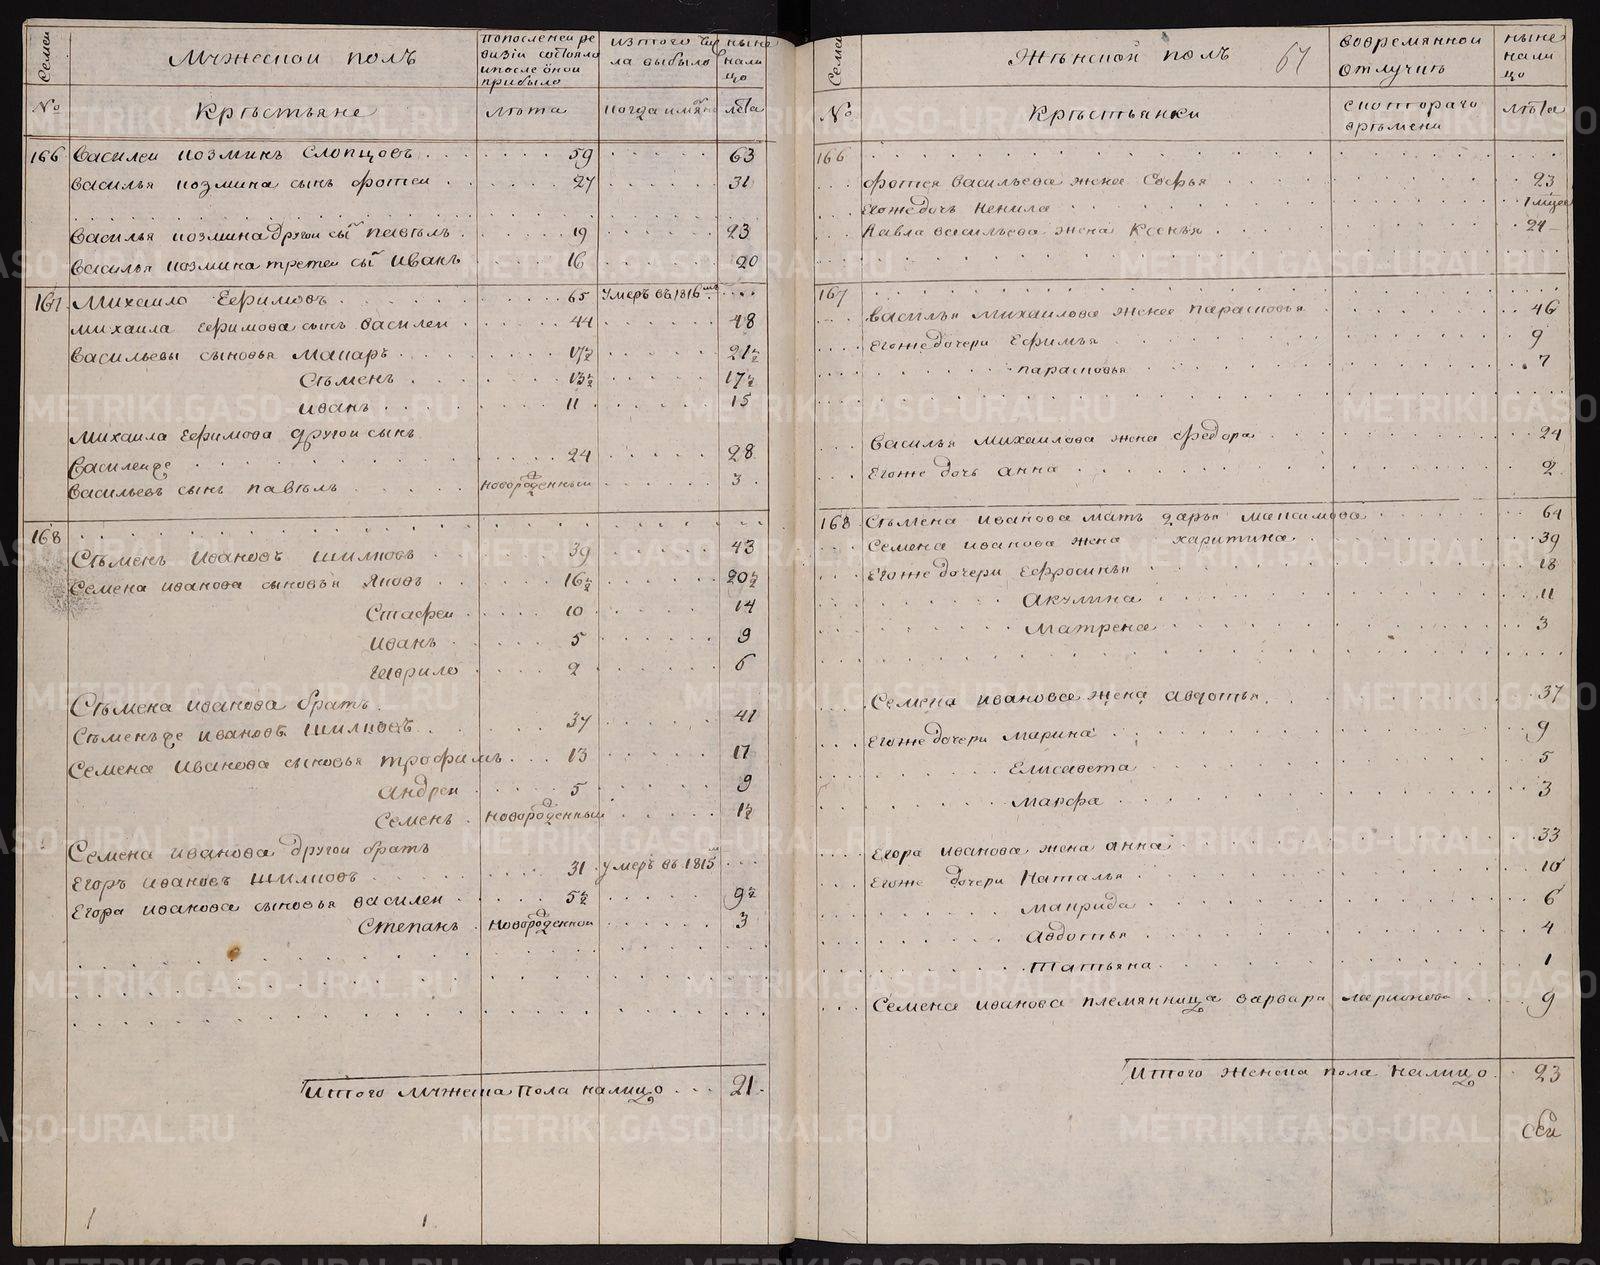 Семеи
Мужескои полъ
попоследнеи ре
визiи состояло
ипосле онои
прибыло
изтого чис
ла выбыло
ныне
нали
цо
№
Крѣстьяне
лѣта
когда имянно
лѣта
166 Василеи козминъ Слопцовъ 59 63
василья козмина сынъ фотеи 27 31
василья козмина другои сынъ павѣлъ 19 23
василья козмина третеи сынъ иванъ 16 20
167 Михаило Ефимовъ 65 умеръ въ 1816мъ
михаила Ефимова сынъ василеи 44 48
васильевы сыновья макаръ 17½ 21½
Сѣменъ 13½ 17½
иванъ 11 15
михаила Ефимова другои сынъ
василеиже 24 28
васильевъ сынъ павѣлъ новорожденныи 3
168
Сѣменъ Ивановъ шилковъ 39 43
Семена иванова сыновья Яковъ 16½ 20½
Стафеи 10 14
иванъ 5 9
гаврило 2 6
Сѣмена иванова братъ
Сѣменъже ивановъ шилковъ 37 41
Семена Иванова сыновья трофимъ 13 17
андреи 5 9
Семенъ новорожденныи 1½
Семена иванова другои братъ
Егоръ ивановъ шилковъ 31 умеръ въ 1815м
Егора иванова сыновья василеи 5½ 9½
Степанъ новорожденнои 3
Итого мужеска пола налицо 21
Семеи
Жѣнскои полъ
67
вовремяннои
отлучкѣ
ныне
нали
цо
№
Крѣстьянки
скоторого
врѣмени
лѣта
166
фотея васильева жена Софья 23
Егожедочь ненила 1 мцев
павла васильева жена Ксенья 24
167
василья михаилова жена парасковья 46
Егожедочери Ефимья 9
парасковья 7
василья михаилова жена федора 24
Егоже дочь анна 2
168 Сѣмена иванова мать дарья максимова 64
Семена иванова жена харитина 39
Егоже дочери Ефросинья 18
Акулина 11
матрена 3
Семена ивановае жена авдотья 37
Егоже дочери марина 9
Елисавета 5
марфа 3
Егора иванова жена анна 33
Егоже дочери Наталья 10
макрида 6
авдотья 4
татьяна 1
Семена иванова племянница варвара ларионова 9
Итого женска пола налицо 23
METRIKI.GASO-URAL.RU